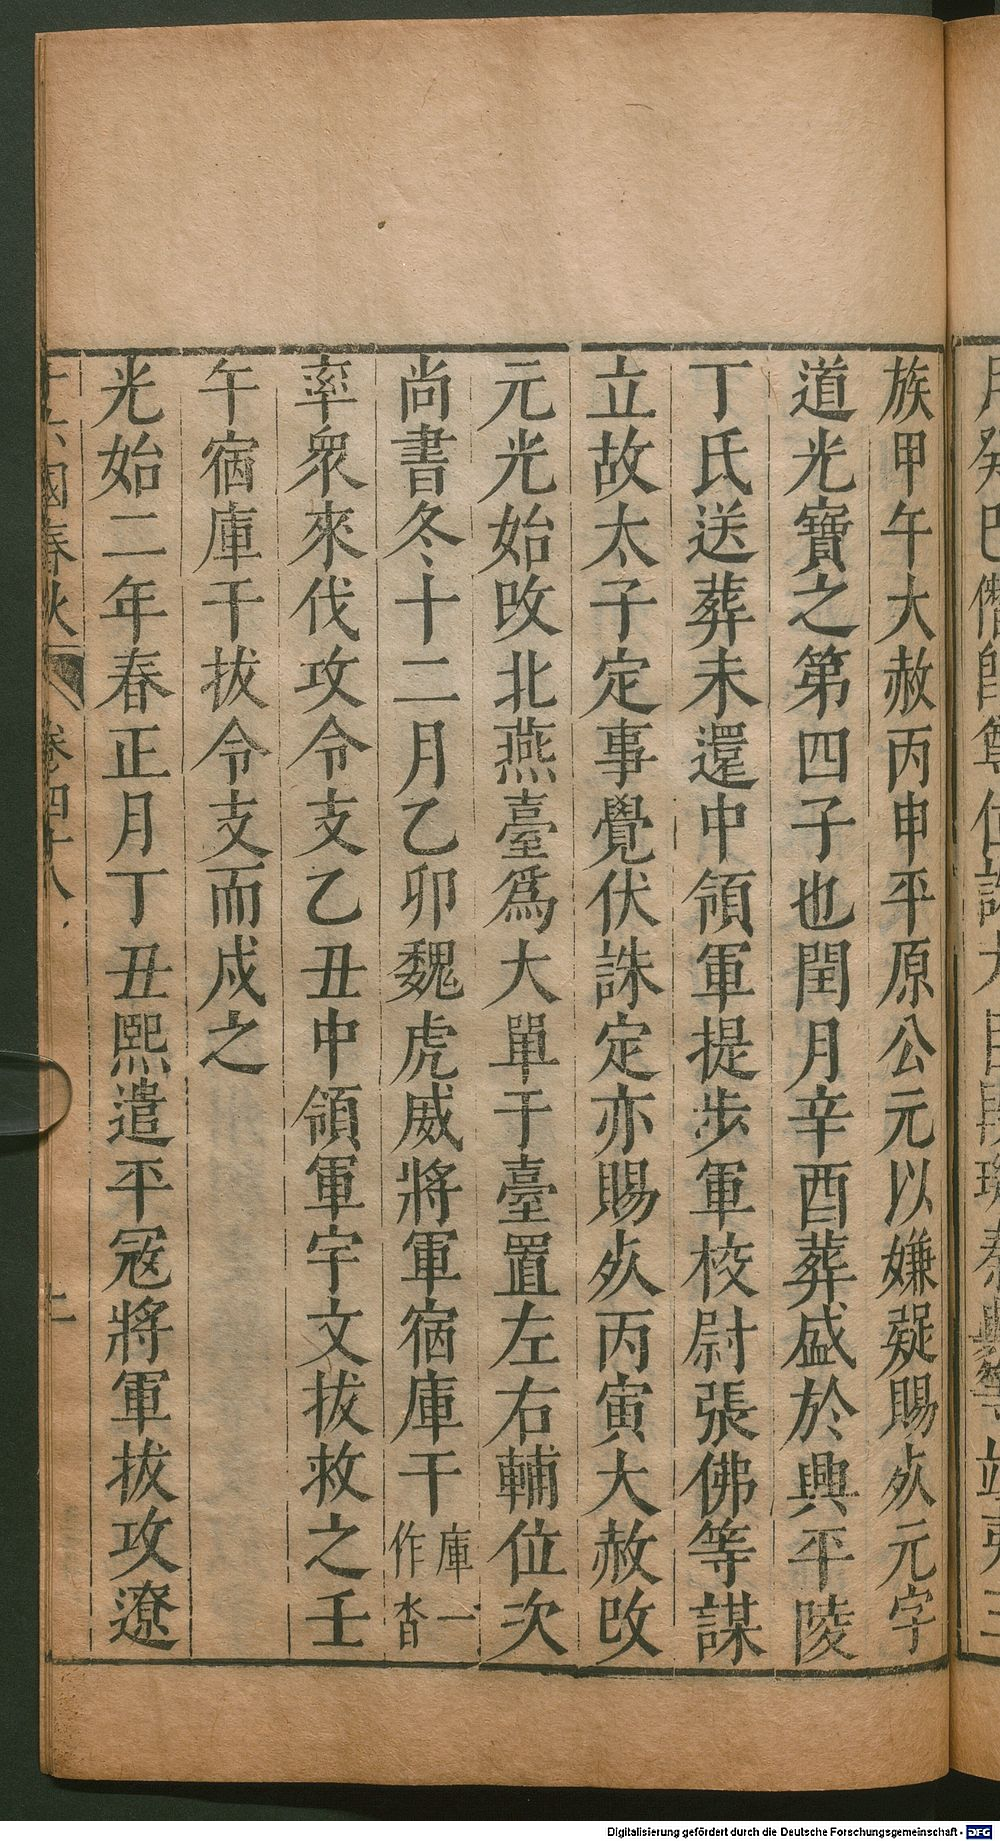 族甲午大赦丙申平原公元以嫌疑賜死元字
道光寶之第四子也閏月辛酉葬盛於興平陵
丁氏送葬未還中領軍提步軍校尉張佛等謀
立故太子定事覺伏誅定亦賜死丙寅大赦改
元光始改北燕臺爲大單于臺置左右輔位次
尚書冬十二月乙卯魏虎威將軍宿庫干庫一作沓
率衆來伐攻令支乙丑中領軍宇文拔救之壬
午宿庫干拔令支而戍之
光始二年春正月丁丑熙遣平冦將軍拔攻遼
十六國春秋 卷四十八
Digitalisierung gefördert durch die Deutsche Forschungsgemeinschaft - DFG